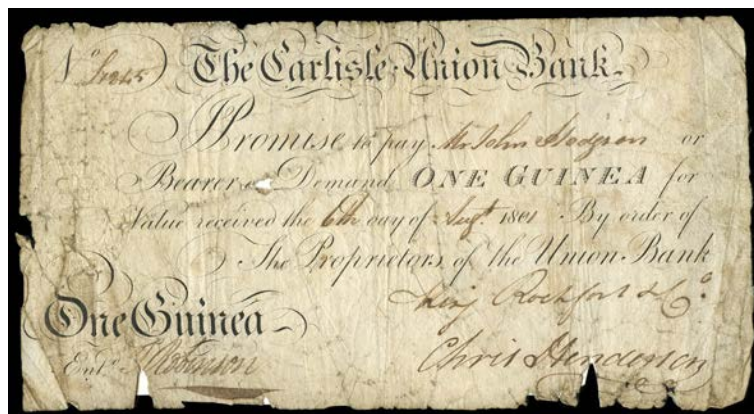 No The Carlisle Union Bank.
I Promise to pay Mr John Hodgson or
Bearer on Demand ONE GUINEA for
Value received the 6th day of Augt. 1801 By order of
The Proprietors of the Union Bank
Rochfort & Co.
One Guinea
Entd. Robinson
Chris Henderson